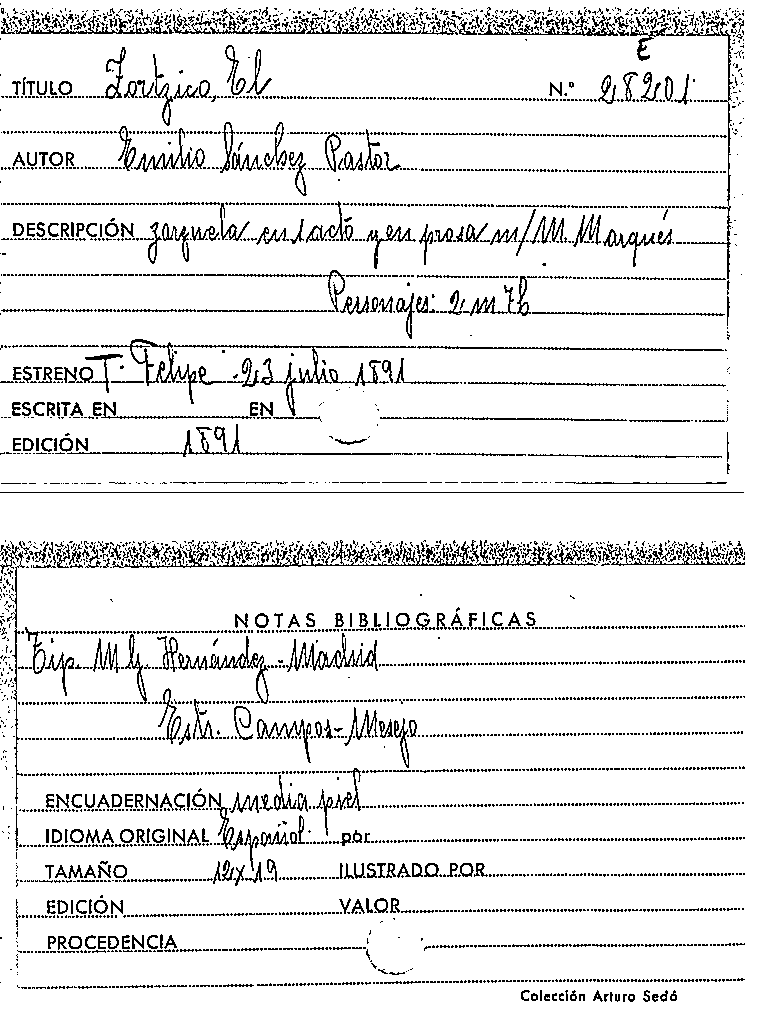 E
TÍTULO Zortzico, El N.º 28201
AUTOR Emilio Sánchez Pastor
DESCRIPCIÓN zarzuela en 1 acto y en prosa m/ M. Marqués
Personajes: 2 m 7 h
ESTRENO T. Felipe - 23 julio 1891
ESCRITA EN EN
EDICIÓN 1891
NOTAS BIBLIOGRÁFICAS
Tip. M. G. Hernández - Madrid
Estr. Campos - Mesejo
ENCUADERNACIÓN media piel
IDIOMA ORIGINAL Español por
TAMAÑO 12x19 ILUSTRADO POR
EDICIÓN VALOR
PROCEDENCIA
Colección Arturo Sedó